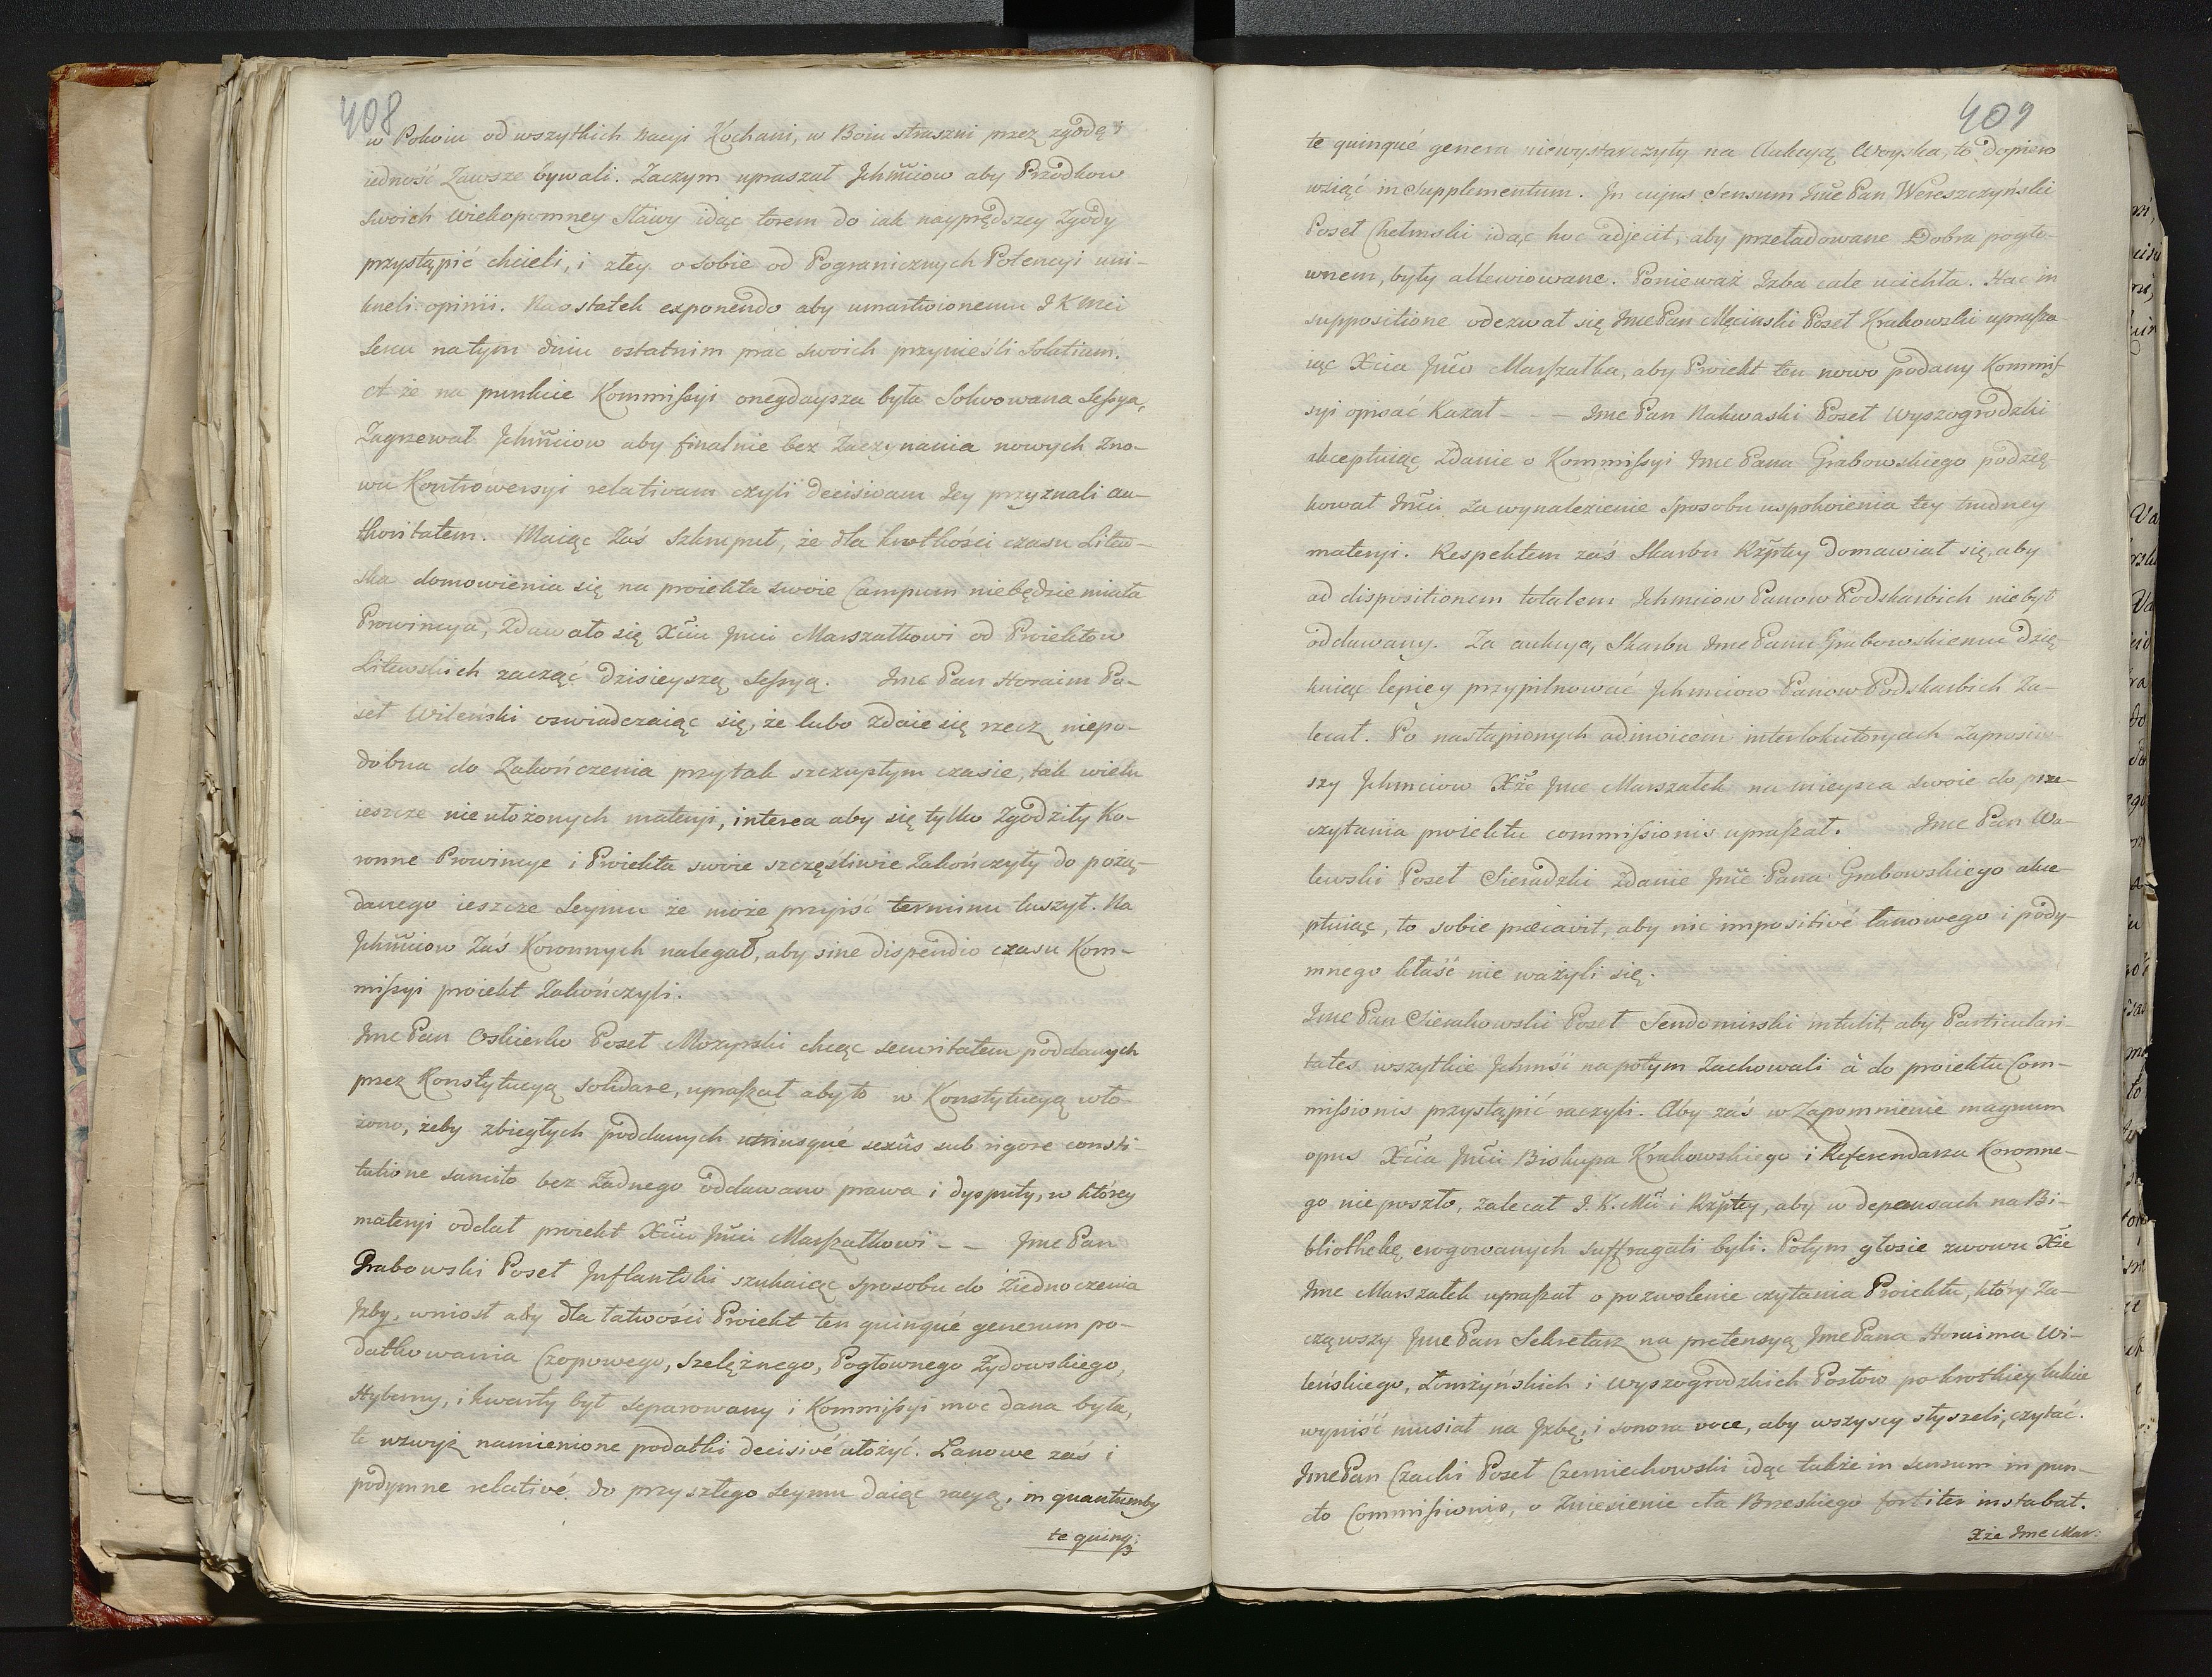 408
w Pokoiu od wszytkich nacyi Kochani, w Boiu straszni przez zgodę i
iedność Zawsze bywali. Zaczym upraszał Jchmciow aby Przodkow
swoich wiekopomney Sławy idąc torem do iak nayprędszey Zgody
przystąpić chcieli, i złey o sobie od Pogranicznych Potencyi uni-
kneli opinii. Naostatek exponendo aby umartwionemu J K Mci
Sercu natym dniu ostatnim prac swoich przynieśli Solatium.
A że na punkcie Kommissyi onegdaysza była Solwowana Sessya,
Zagrzewał Jchmciow aby finalnie bez Zaczynania nowych zno-
wu Kontrowersyi relativam czyli decisivam Jey przyznali au-
thoritatem. Maiąc Zaś Szkruput, że dla krotkości czasu Litew-
ska domowienia się na proiekta swoie Campum niebędzie miała
Prowincya, Zdawało się Xciu Jmci Marszałkowi od Proiektow
Litewskich zacząć dzisieyszą Sessyą. Jmc Pan Horaim Po-
seł Wileński oswiadczaiąc się, że lubo zdaie się rzecz niepo-
dobna do Zakończenia przytak szczupłym czasie, tak wielu
ieszcze nieułożonych materyi, interea aby się tylko Zgodziły Ko-
ronne Prowincye i Proiekta swoie szczęśliwie Zakończyły do pożą-
danego ieszcze Seymu że może przyiść terminu tuszył. Na
Jchmciow Zaś Koronnych nalegał, aby sine dispendio czasu Kom-
missyi proiekt Zakończyli.
Jmc Pan Oskierko Poseł Mozyrski chcąc securitatem poddanych
przez Konstytucyą solidare, upraszał aby to w Konstytucyą wło-
żono, żeby zbiegłych poddanych utriusqué sexûs sub rigore consti-
tutione sancito bez Żadnego oddawano prawa i dysputy, w którey
materyi oddał proiekt Xciu Jmci Marszałkowi - - Jmc Pan
Grabowski Poseł Jnflantski szukaiąc sposobu do Ziednoczenia
Jzby, wniosł aby dla łatwości Proiekt ten quinqué generum po-
datkowania Czopowego, Szelężnego, Pogłownego Żydowskiego,
Hyberny, i kwarty był separowany i Kommissyi moc dana była,
te wzwyż namienione podatki decisivé ułożyć. Lanowe zaś i
podymne relativé do przyszłego Seymu daiąc racyą, in quantumby
te quinq;
409
te quinqué genera niewystarczyły na Aukcyą Woyska, to dopiero
wziąć in Supplementum. Jn cujus Sensum Jmc Pan Wereszczyński
Poseł Chełmski idąc hoc adjecit, aby przeładowane Dobra pogło-
wnem, były allewiowane. Ponieważ Jzba cale ucichła. Hac in
suppositione odezwał się Jmc Pan Męcinski Poseł Krakowski uprasza-
iąc Xcia Jmci Marszałka, aby Proiekt ten nowo podany Kommis-
syi opisać Kazał - - - Jmc Pan Nakwaski Poseł Wyszogrodzki
akceptuiąc Zdanie o Kommissyi Jmc Pana Grabowskiego podzię-
kował Jmci za wynalezienie sposobu uspokoienia tey trudney
materyi. Respektem zaś Skarbu Rzptey domawiał się, aby
ad dispositionem totalem Jchmciow Panow Podskarbich niebył
oddawany. Za aukcyą Skarbu Jmc Panu Grabowskiemu dzię-
kuiąc lepiey przypilnować Jchmciow Panow Podskarbich Za-
lecał. Po nastąpionych adinvicem interlokutoryach Zaprosiw-
szy Jchmciow Xże Jmc Marszałek na mieysca swoie do prze-
czytania proiektu commissionis upraszał. Jmc Pan Wa-
lewski Poseł Sieradzki Zdanie Jmc Pana Grabowskiego akce-
ptuiąc, to sobie præcavit, aby nic impositivé łanowego i pody-
mnego kłaść nie ważyli się.
Jmc Pan Sierakowski Poseł Sendomirski intulit, aby Particulari-
tates wszytkie Jchmść napotym Zachowali à do proiektu Com-
missionis przystąpić raczyli. Aby zaś w Zapomnienie magnum
opus Xcia Jmci Biskupa Krakowskiego i Referendarza Koronne-
go nie poszło, zalecał J. K. Mci i Rzptey, aby w depensach na Bi-
bliothekę ewogowanych suffragati byli. Potym głosie znowu Xże
Jmc Marszałek upraszał o pozwolenie czytania Proiektu, który Za-
cząwszy Jmc Pan Sekretarz na pretensyą Jmc Pana Horaima Wi-
leńskiego, Łomżyńskich i Wyszogrodzkich Posłow po krotkiey
wyniść musiał na Jzbę, i sonora voce, aby wszyscy słyszeli, czytać.
Jmc Pan Czacki Poseł Czerniechowski idąc także in sensum in pun-
cto Commissionis, o Zniesienie cła Brzeskiego fortiter instabat.
Xże Jmc Mar: